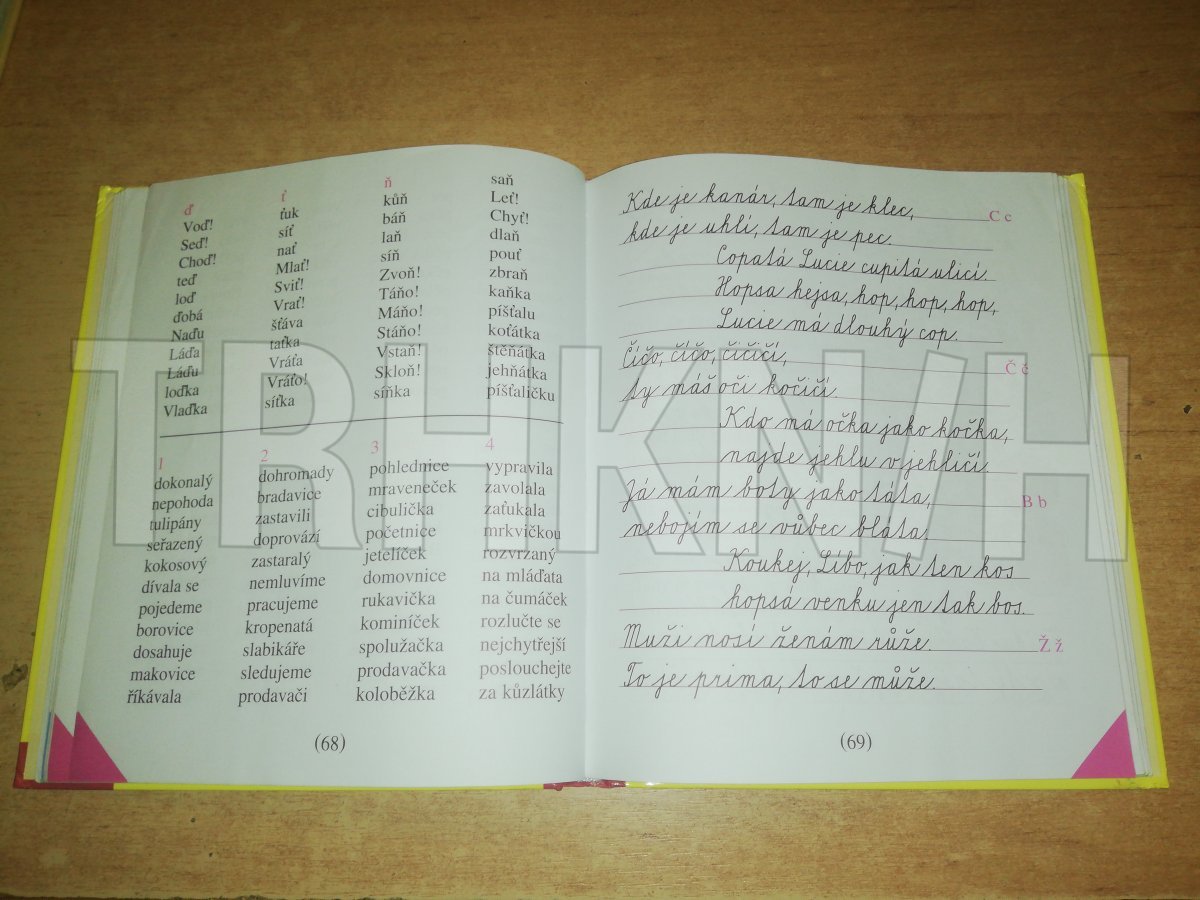 ď
Voď!
Seď!
Choď!
teď
loď
ďobá
Naďu
Láďa
Láďu
loďka
Vlaďka
ť
ťuk
síť
nať
Mlať!
Sviť!
Vrať!
šťáva
taťka
Vráťa
Vráťo!
síťka
ň
kůň
báň
laň
síň
Zvoň!
Táňo!
Máňo!
Stáňo!
Vstaň!
Skloň!
síňka
saň
Leť!
Chyť!
dlaň
pouť
zbraň
kaňka
píšťalu
koťátka
štěňátka
jehňátka
píšťaličku
1
dokonalý
nepohoda
tulipány
seřazený
kokosový
dívala se
pojedeme
borovice
dosahuje
makovice
říkávala
2
dohromady
bradavice
zastavili
doprovází
zastaralý
nemluvíme
pracujeme
kropenatá
slabikáře
sledujeme
prodavači
3
pohlednice
mraveneček
cibulička
početnice
jetelíček
domovnice
rukavička
kominíček
spolužačka
prodavačka
koloběžka
4
vypravila
zavolala
zaťukala
mrkvičkou
rozvrzaný
na mláďata
na čumáček
rozlučte se
nejchytřejší
poslouchejte
za kůzlátky
(68)
Kde je kanár, tam je klec, C c
kde je uhlí, tam je pec.
Copatá Lucie cupitá ulicí.
Hopsa hejsa, hop, hop, hop,
Lucie má dlouhý cop.
Čičo, číčo, čičičí, Č č
ty máš oči kočičí.
Kdo má očka jako kočka,
najde jehlu v jehličí.
Já mám boty jako táta, B b
nebojím se vůbec bláta.
Koukej, Líbo, jak ten kos
hopsá venku jen tak bos.
Muži nosí ženám růže. Ž ž
To je prima, to se může.
(69)
TRHKNIH